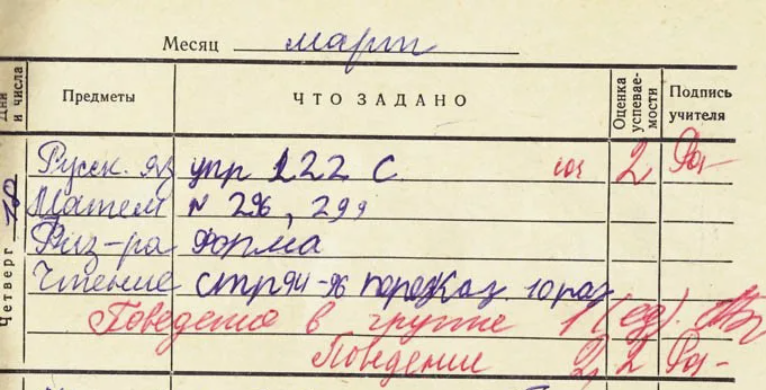 Месяц март
Дни и числа Предметы ЧТО ЗАДАНО Оценка успеваемости Подпись учителя
Четверг 18
Русск. яз упр 122 с. 2
Матем № 296, 299
Физ-ра форма
Чтение стр 94-96 10 раз
Поведение в группе 1 (ед).
Поведение 2, 2